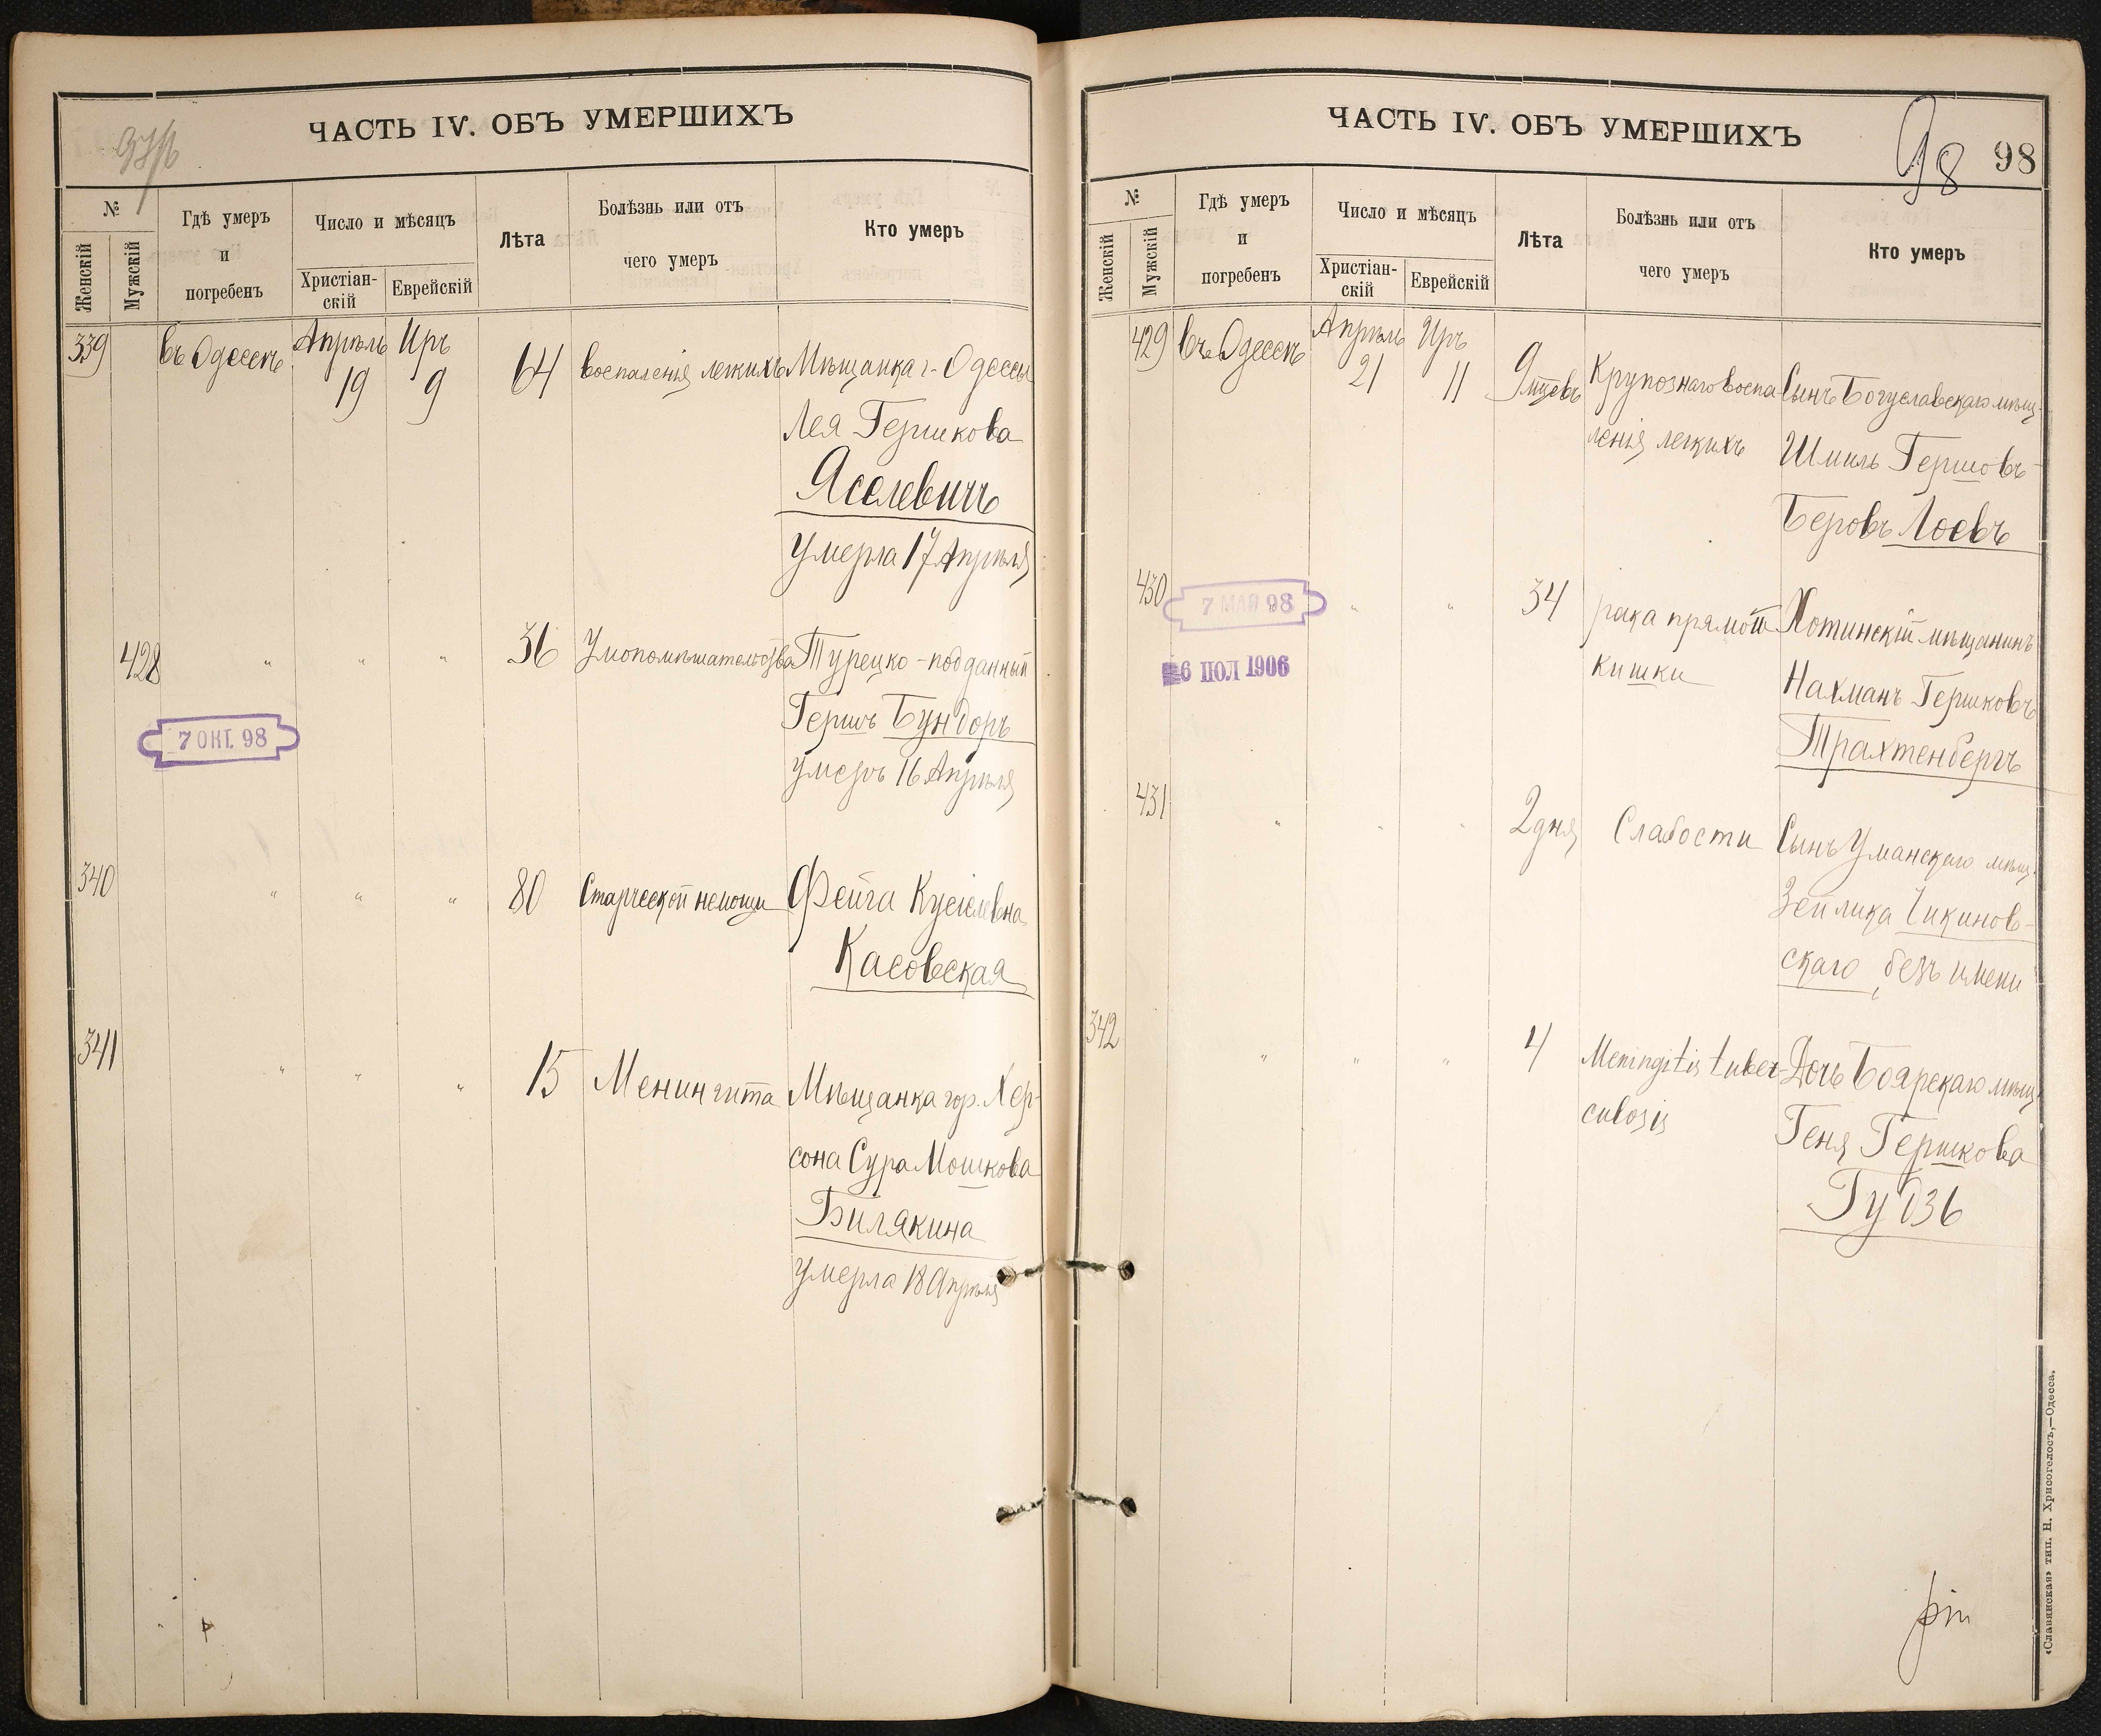 ЧАСТЬ IV. ОБЪ УМЕРШИХЪ
№
Женскій
Мужскій
Гдѣ умеръ
и
погребенъ
Число и мѣсяцъ
Христіан-
скій
Еврейскій
Лѣта
Болѣзнь или отъ
чего умеръ
Кто умеръ
339 въ Одессѣ Апрѣль Иръ 64 воспаленія легкихъ Мѣщанка г. Одессы
19 9
Лея Гершкова
Яселевичъ
умерла 17 Апрѣля
428 " " " 36 Умопомѣшательства Турецко-подданный
Гершъ Бундоръ
умеръ 16 Апрѣля
7 ОКТ. 98
340 " " " 80 Старческой немощи Фейга Кусіелевна
Касовская
341 " " " 15 Менингита Мѣщанка гор. Хер-
сона Сура Мошкова
Билякина
умерла 18 Апрѣля
ЧАСТЬ IV. ОБЪ УМЕРШИХЪ
98 98
№
Женскій
Мужскій
Гдѣ умеръ
и
погребенъ
Число и мѣсяцъ
Христіан-
скій
Еврейскій
Лѣта
Болѣзнь или отъ
чего умеръ
Кто умеръ
429 въ Одессѣ Апрѣль Иръ 9 мѣсяцевъ Крупознаго воспа- Сынъ Богуславскаго мѣщ.
21 11
ленія легкихъ Шмиль Гершовъ-
Беровъ Лоевъ
430 " " " 34 рака прямой Хотинскій мѣщанинъ
7 МАЙ 98
6 ІЮЛ 1906
кишки Нахманъ Гершковъ
Трахтенбергъ
431 " " " 2 дня Слабости Сынъ Уманскаго мѣщ.
Зейлика Чикинов-
скаго, безъ имени
342 " " " 4 Meningitis tuber- Дочь Боярскаго мѣщ.
culosis Геня Гершкова
Гудзъ
«Славянская» тип. Н. Хрисогелосъ,—Одесса.